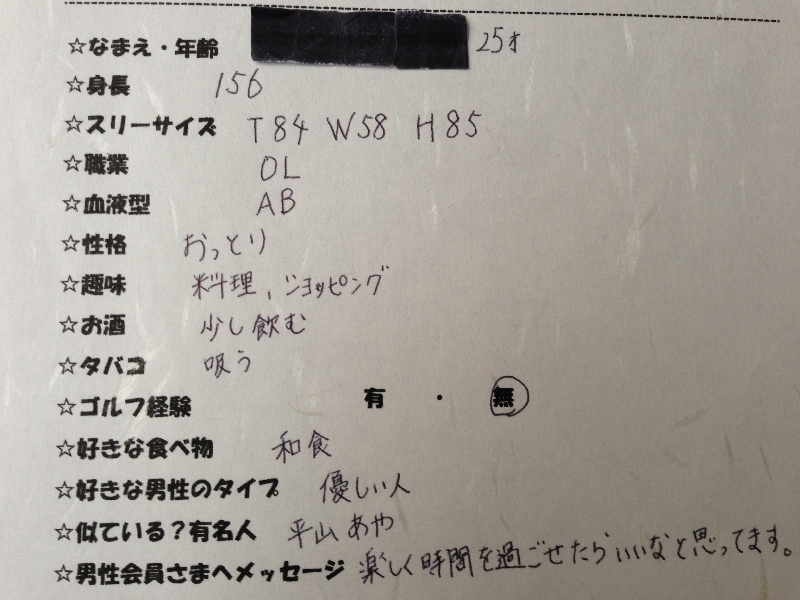 ☆なまえ・年齢 25才
☆身長 156
☆スリーサイズ T84 W58 H85
☆職業 OL
☆血液型 AB
☆性格 おっとり
☆趣味 料理、ショッピング
☆お酒 少し飲む
☆タバコ 吸う
☆ゴルフ経験 有 ・ 無
☆好きな食べ物 和食
☆好きな男性のタイプ 優しい人
☆似ている?有名人 平山あや
☆男性会員さまへメッセージ 楽しく時間を過ごせたらいいなと思ってます。